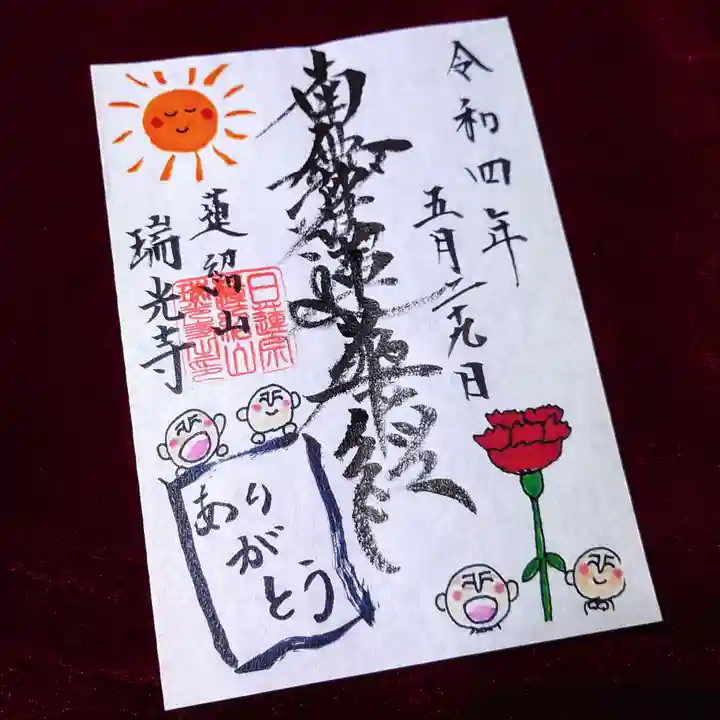 令和四年
五月二十九日
南無妙法蓮華経
蓮紹山
瑞光寺
日蓮宗
蓮紹山
瑞光寺印
ありがとう